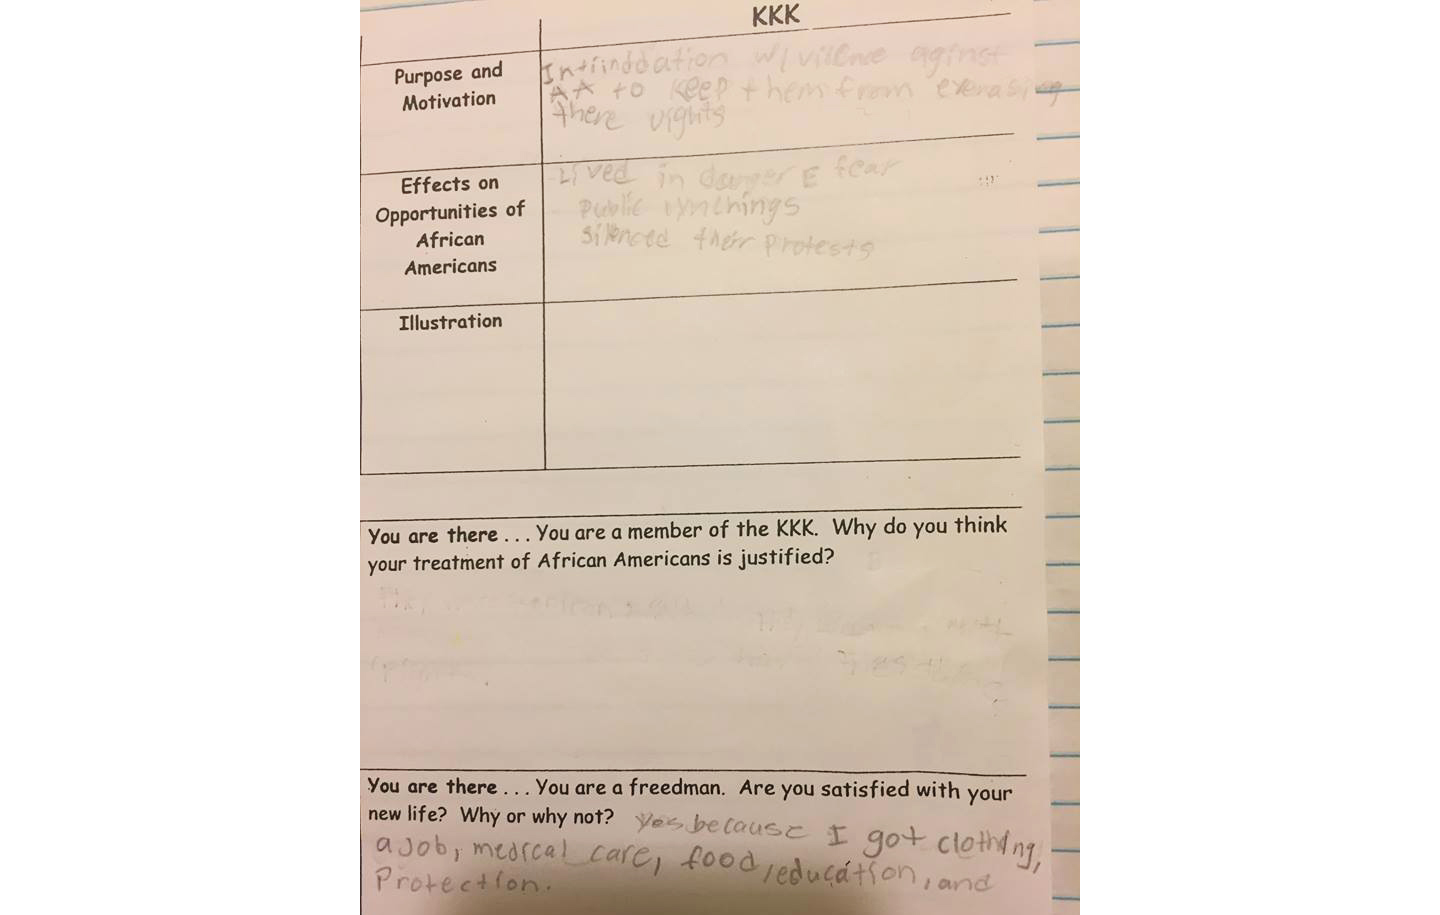 KKK
Purpose and
Motivation
Intiinddation w/ vilence aginst
AA to keep them from exerasing
there rights
Effects on
Opportunities of
African
Americans
Lived in danger & fear
Public lynchings
silenced their protests
Illustration
You are there . . . You are a member of the KKK. Why do you think
your treatment of African Americans is justified?
You are there . . . You are a freedman. Are you satisfied with your
new life? Why or why not? Yes because I got clothing,
a job, medical care, food, education, and
Protection.